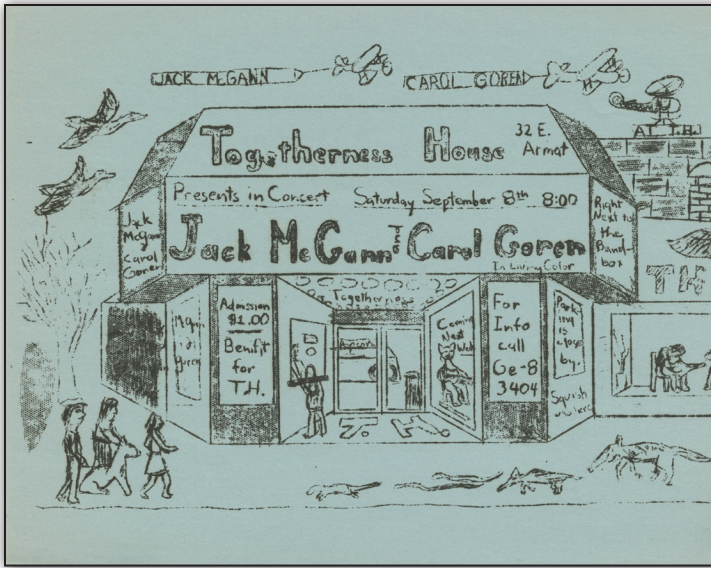 JACK McGANN
CAROL GOREN
AT T.H.
Togetherness House
32 E.
Armat
Presents in Concert Saturday September 8th 8:00
Jack McGann and Carol Goren
In Living Color
Jack
McGann
Carol
Goren
Right
Next to
the
Band-
box
TH
Togetherness
McGann
Goren
Admission
$1.00
Benifit
for
T.H.
Coming
Next
For
Info
call
Ge-8
3404
Park-
ing
is
close
by.
Squish
T. H.